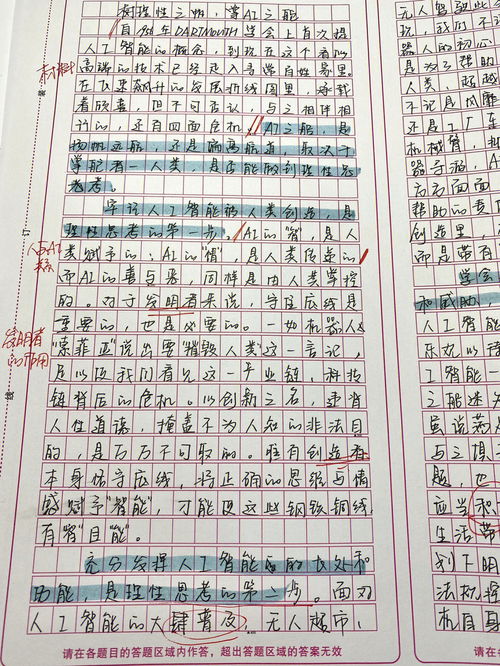 有理性之帆,誉AI之船
自从在DARTMOUTH学会上首次提
人工智能的概念,到现在这个看似
高端的技术已经走入寻常百姓家里。
在飞速飙升的发展折线图里,承载
着欣喜,但不可否认,与之相伴相
行的,还有四面危机。AI之船,是
扬帆远航,还是偏离航道,取决于
掌舵者—人类,是否能做到理性思
考。
牢记人工智能被人类创造,是
理性思考的第一步。AI的"智",是人
类赋予的;AI的"情",是人类传递的
而AI的喜与乐,同样是由人类掌控
的。对于发明者来说,守住底线是
重要的,也是必要的。一如机器人
"索菲亚"说出要"摧毁人类"这一言论,
足以使我们看见这一产业链,科技
链背后的危机。以创新之名,违背
人性道德,掩盖不为人知的非法目
的,是万万不可取的。唯有创造者
本身保守底线,将正确的思维与情
感赋予"智能",才能使这些钢铁铜线,
有"智"目"能"。
充分发挥人工智能的长处和
功能,是理性思考的第二步。面对
人工智能的大肆普及,无人超市、
素材
人与AI
关系
发明者
的作用
装
订
线
请在各题目的答题区域内作答,超出答题区域的答案无效
无人驾驶
我们不
器人的初心
是为了帮助
人类,越
不论是风靡
还是工厂车
机械臂,
器导游,A
方方面面
帮助的
创造里,
而是带有
学会
人工智能
乐观以
人工智能一
之船迷
虽说
与之
题,也
应当和
生活带
划下明
法